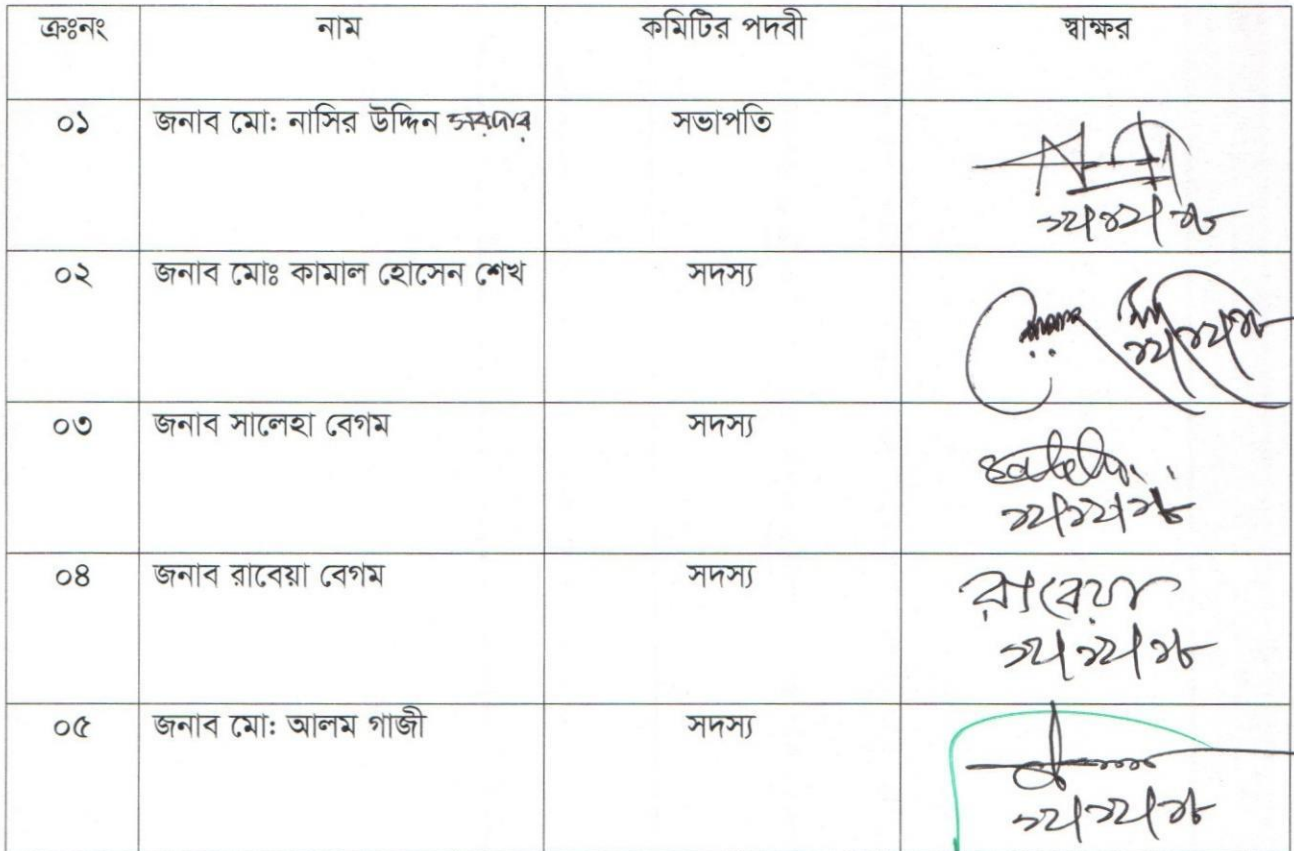 ক্রঃনং নাম কমিটির পদবী স্বাক্ষর
০১ জনাব মো: নাসির উদ্দিন সরদার সভাপতি
১২/১২/১৮
০২ জনাব মোঃ কামাল হোসেন শেখ সদস্য
১২/১২/১৮
০৩ জনাব সালেহা বেগম সদস্য
saleha
১২/১২/১৮
০৪ জনাব রাবেয়া বেগম সদস্য
রাবেয়া
১২/১২/১৮
০৫ জনাব মো: আলম গাজী সদস্য
১২/১২/১৮